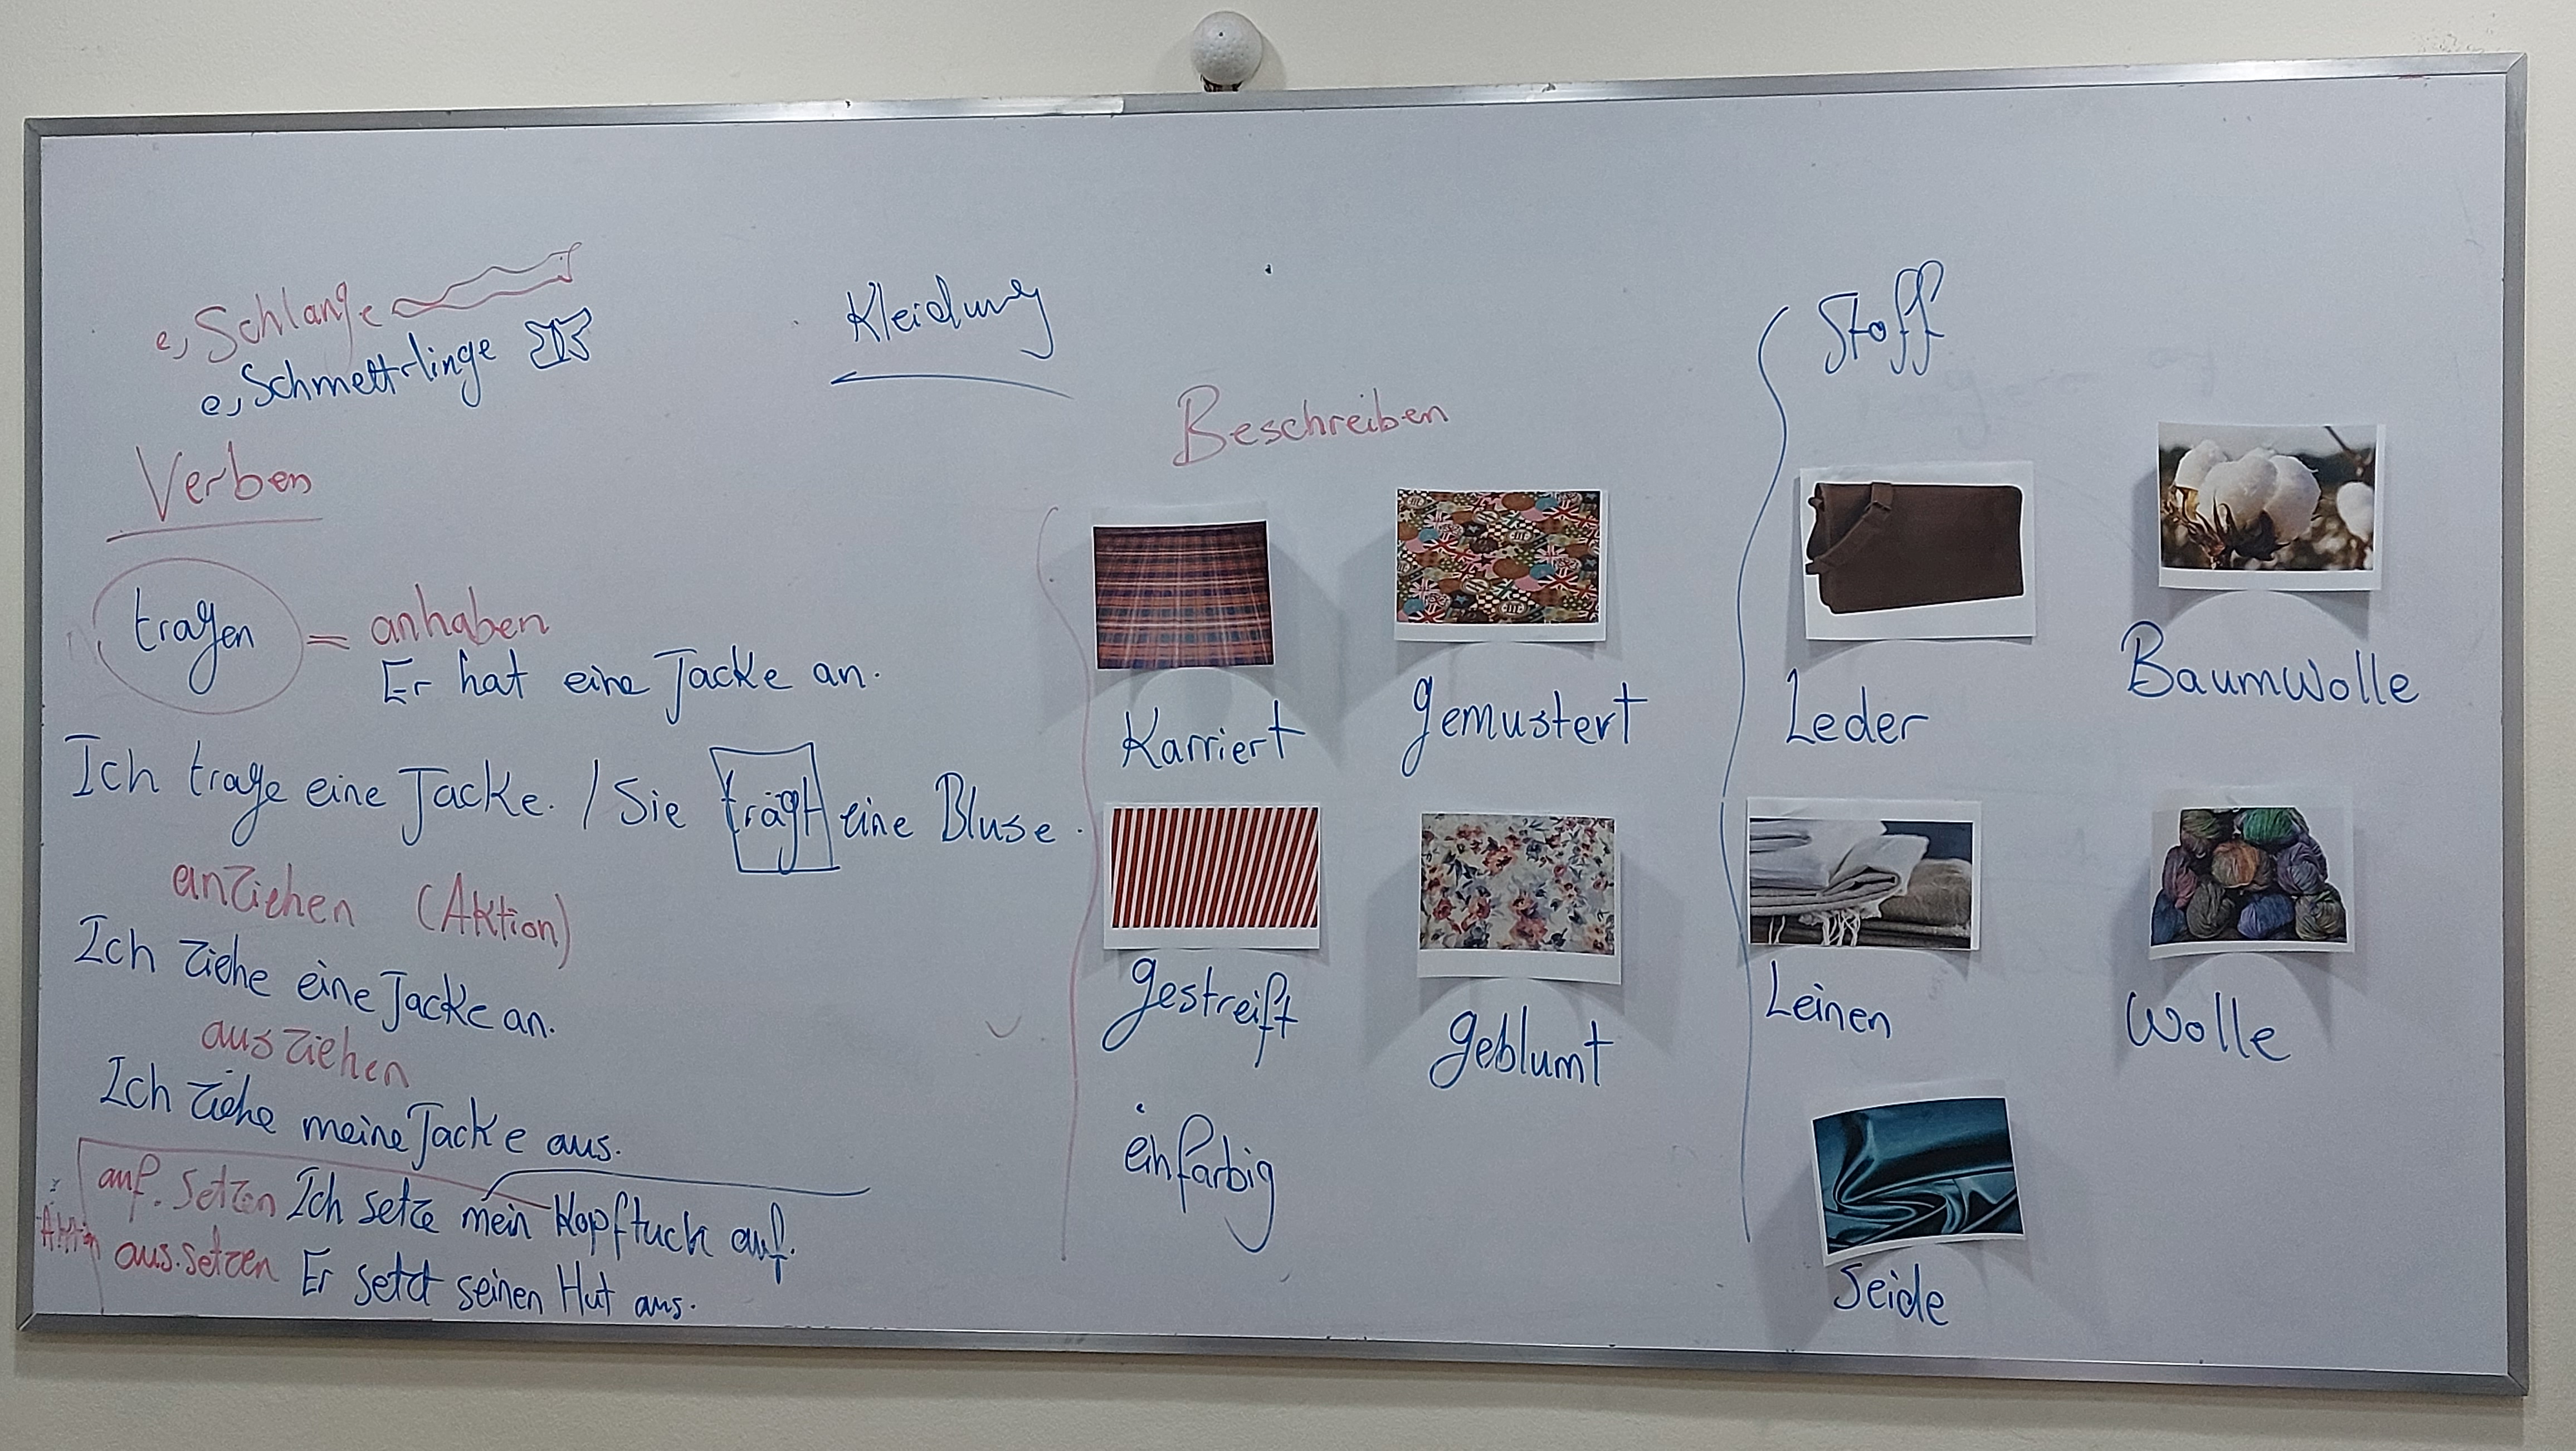 e, Schlange
e, Schmetterlinge
Verben
tragen = anhaben
Er hat eine Jacke an.
Ich trage eine Jacke. / Sie trägt eine Bluse.
anziehen (Aktion)
Ich ziehe eine Jacke an.
ausziehen
Ich ziehe meine Jacke aus.
auf.setzen Ich setze mein Kopftuch auf.
Aktion
aus.setzen Er setzt seinen Hut aus.
Kleidung
Beschreiben
Karriert
gemustert
gestreift
geblumt
einfarbig
Stoff
Leder
Baumwolle
Leinen
Wolle
Seide